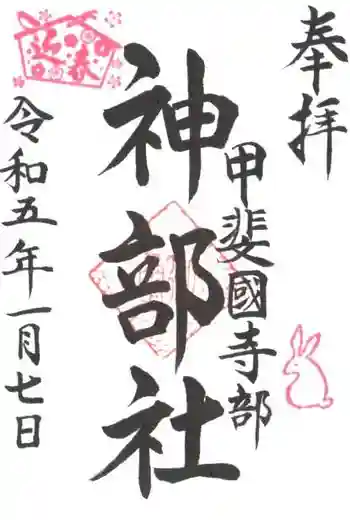 奉拝
甲斐國寺部
神部社
令和五年一月七日
迎春